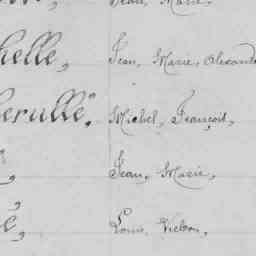 Jean, Marie,
helle, Jean, Marie, Alexand
erullé, Michel, François,
, Jean, Marie,
é, Louis, Victor,